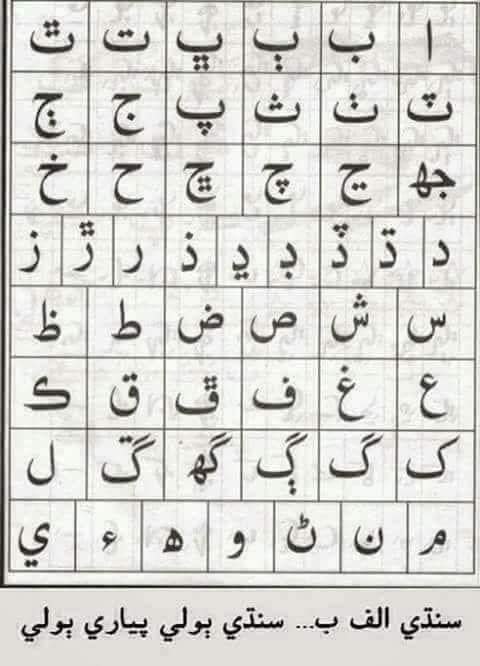 ا ب ٻ ڀ ت ٿ
ٽ ٺ ث پ ج ڄ
جھ ڃ چ ڇ ح خ
د ڌ ڏ ڊ ڍ ذ ر ڙ ز
س ش ص ض ط ظ
ع غ ف ڦ ق ڪ
ک گ ڳ گھ ڱ ل
م ن ڻ و ھ ء ي
سنڌي الف ب... سنڌي ٻولي پياري ٻولي